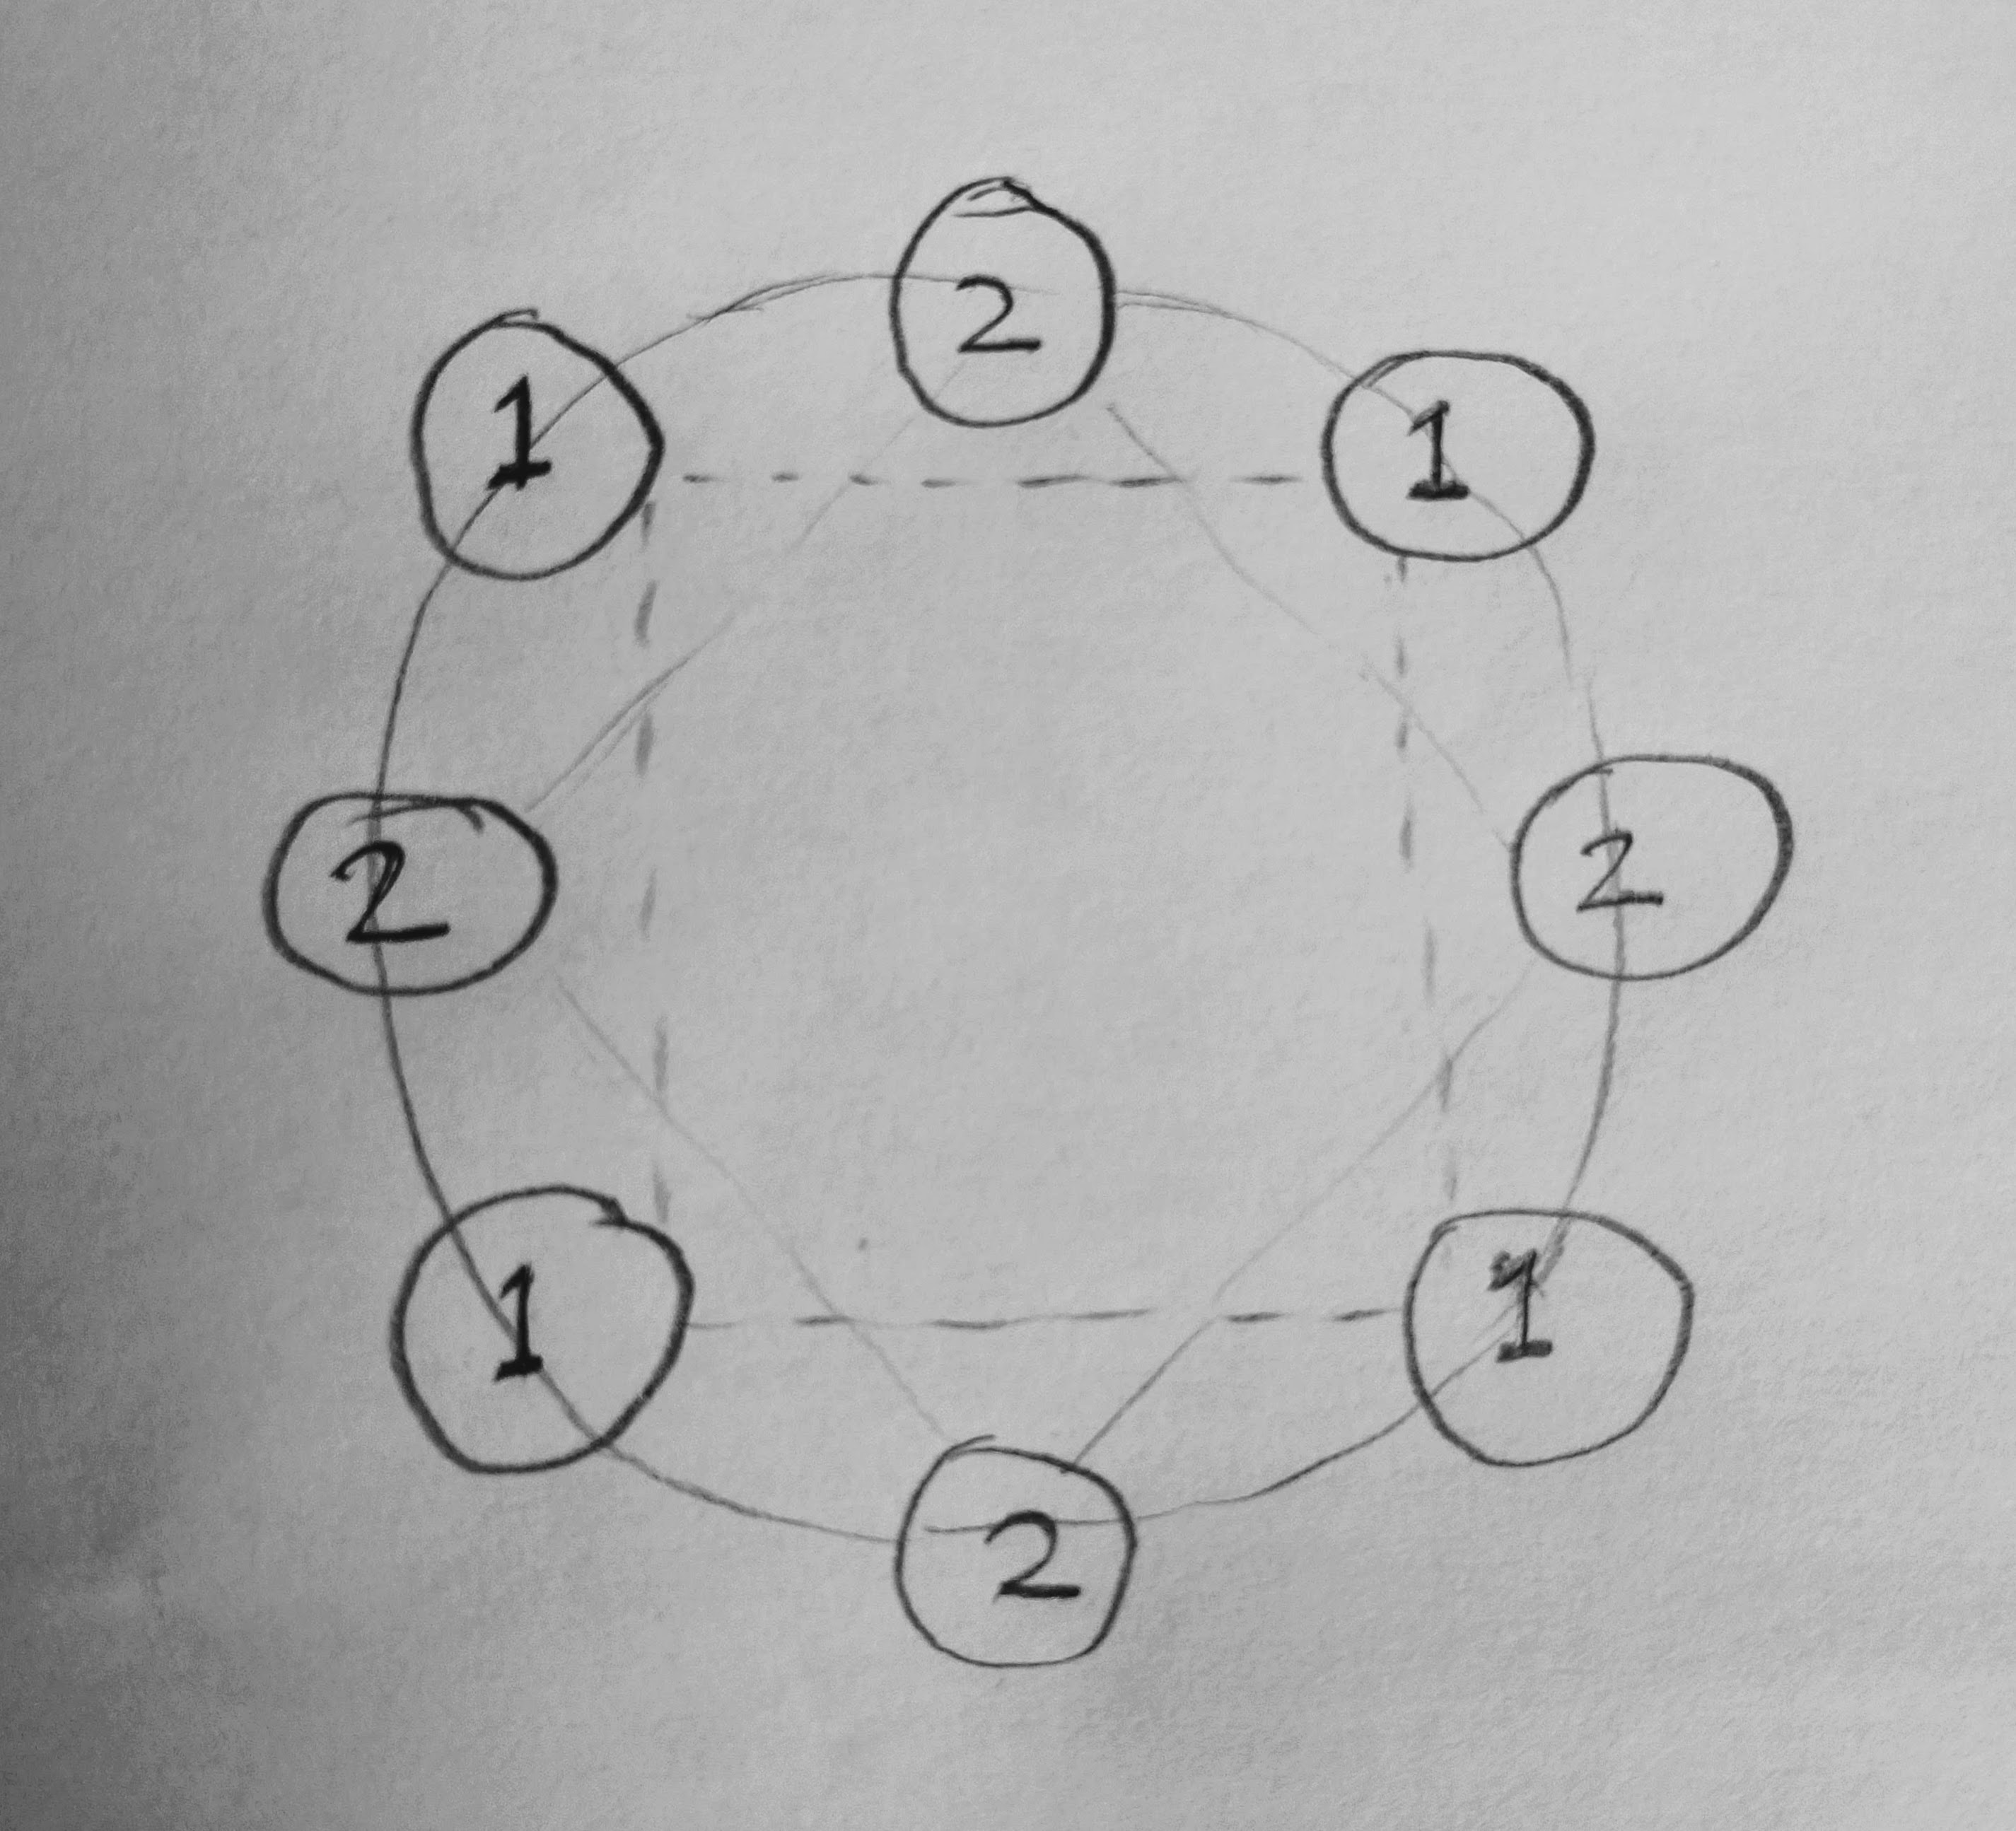 2
1
1
2
2
1
1
2